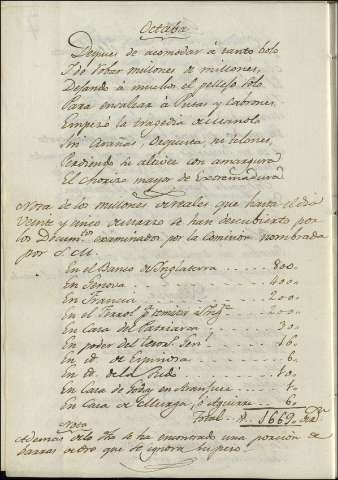 Octaba
Depues de acomodar á tanto bolo
I de Robar millones de millones,
Dejando á muchos el pellejo solo
Para ensalzar á Putas y Cabrones,
Empezó la tragedia de Manolo
Sin Arañas, Orquesta, ni telones,
Perdiendo su alvice con amargura
El choriso mayor de Extremadura
Nota de los millones de reales que hasta el dia
Veinte y cinco de Marzo se han descubierto por
los Docum.tos examinados por la Comision nombrada
por S.M.
En el Banco de Inglaterra 800
En Genova 400
En Francia 200
En el Ferrol p.a remitir á Ing.a 200
En Casa del 30
En poder del Tesor.o Gen.l 16
En id. de Espinosa 6
En id. de la 1
En Casa de Godoy en Aranjuez 10
En Casa de 6
Total 1669
Nota
Ademas de lo dho se ha encontrado una porcion de
barras de oro que se ignora su peso